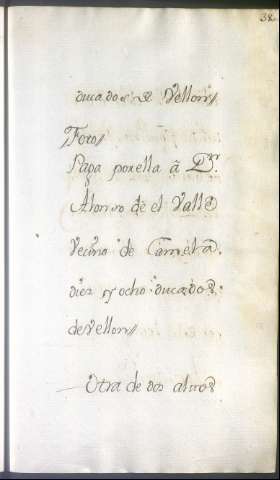 38
ducados de Vellon//
Foro//
Paga porella â Dn.
Alonso de el Valle
Vecino de Cam
diez y ocho ducados
de vellon//
Otra de dos